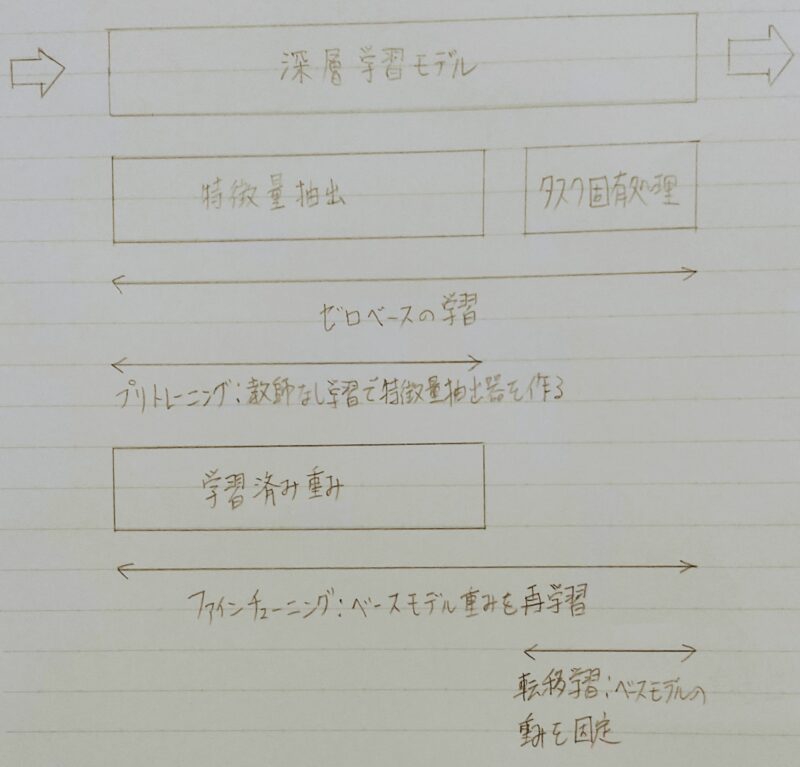 深層学習モデル
特徴量抽出
タスク固有処理
ゼロベースの学習
プリトレーニング:教師なし学習で特徴量抽出器を作る
学習済み重み
ファインチューニング:ベースモデル重みを再学習
転移学習:ベースモデルの
重みを固定